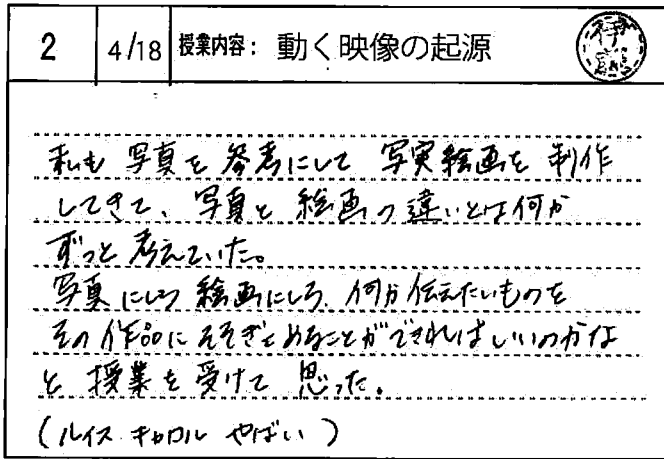 2 4/18 授業内容: 動く映像の起源
私も 写真を 参考にして 写実絵画を 制作
してきて、写真と 絵画の違いとは何か
ずっと 考えていた。
写真にしろ 絵画にしろ、何か伝えたいものを
その作品にそそぎとめることができればいいのかな
と 授業を受けて 思った。
(ルイス キャロル やばい)